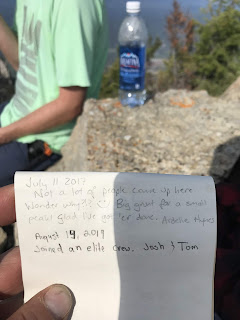 July 11 2017
Not a lot of people come up here
Wonder why?? Big grunt for a small
peak! Glad I've got 'er done -
August 14, 2019
Joined an elite crew. Josh & Tom